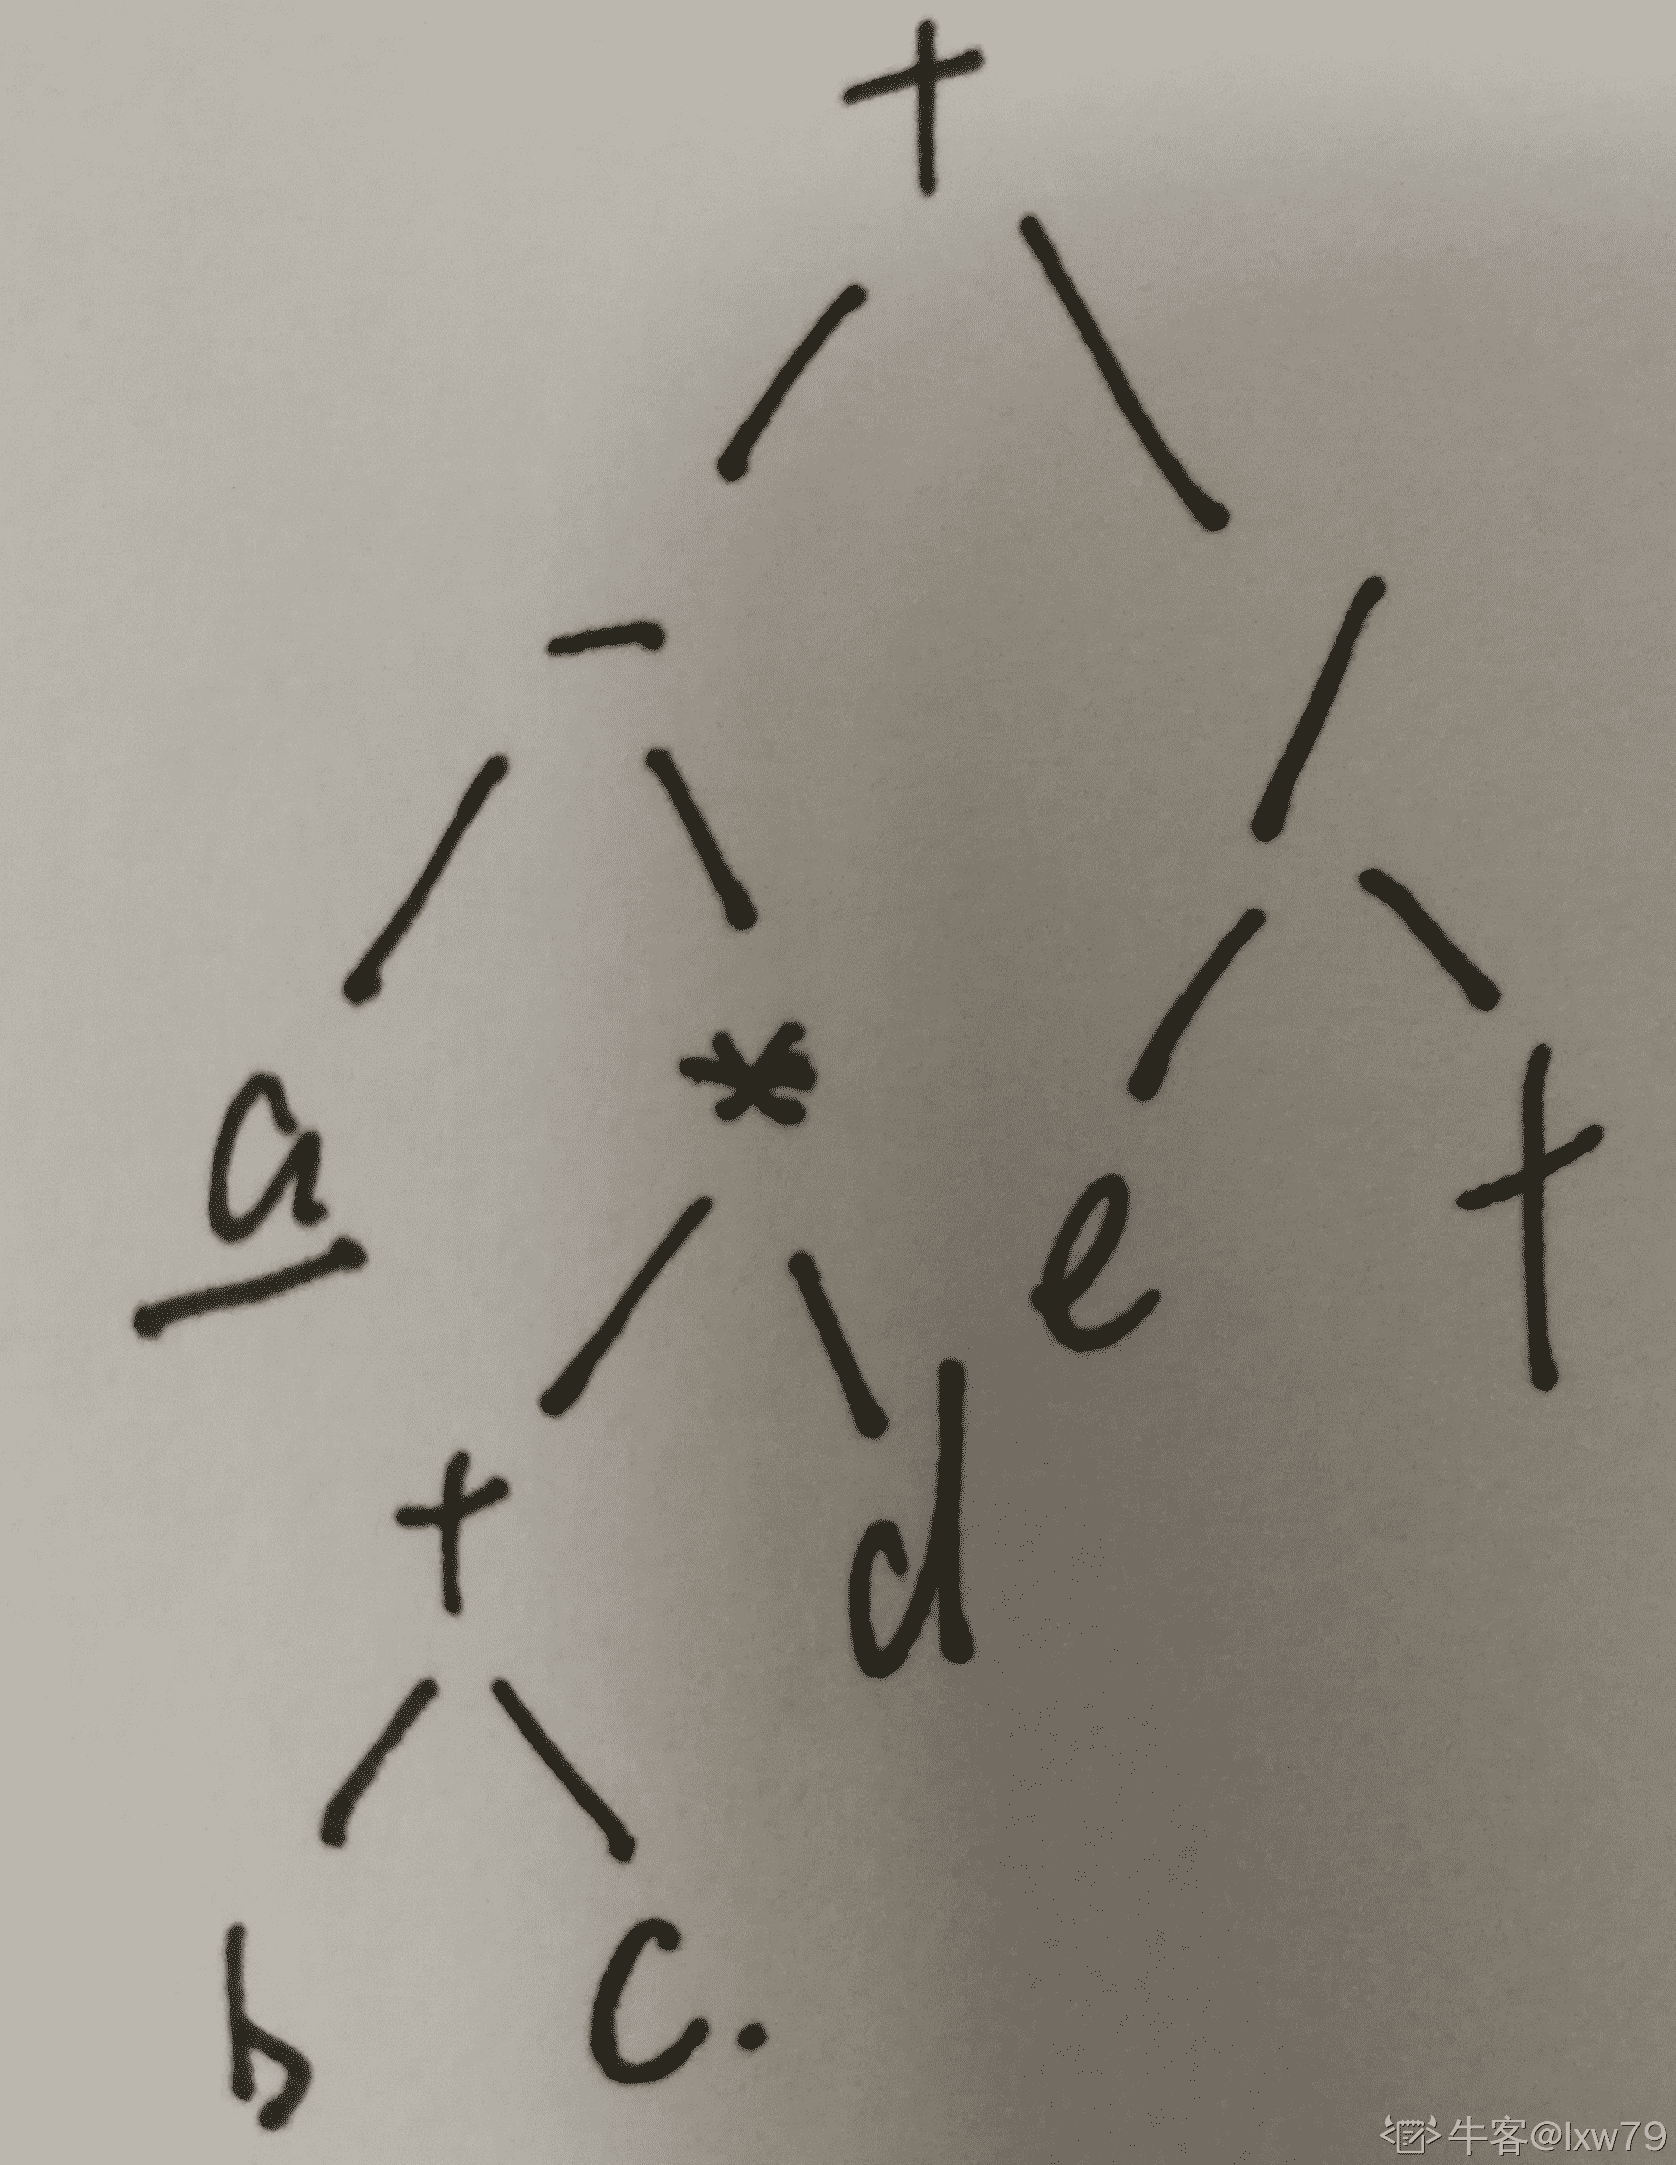 +
- /
a *
e t
+ d
b c.
牛客@lxw79